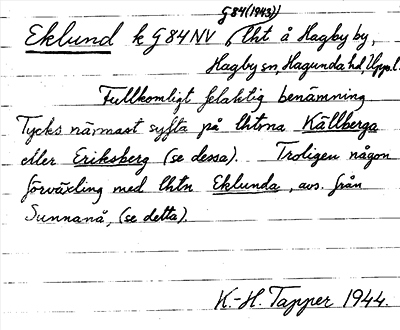 G 84 (1943))
Eklund k G 84 NV, lht å Hagby by,
Hagby sn, Hagunda hd, Uppl.
Fullkomligt felaktig benämning
Tycks närmast syfta på lhtrna Källberga
eller Eriksberg (se dessa). Troligen någon
förväxling med lhtn Eklunda, avs. från
Sunnanå, (se detta).
K.-H. Tapper 1944.